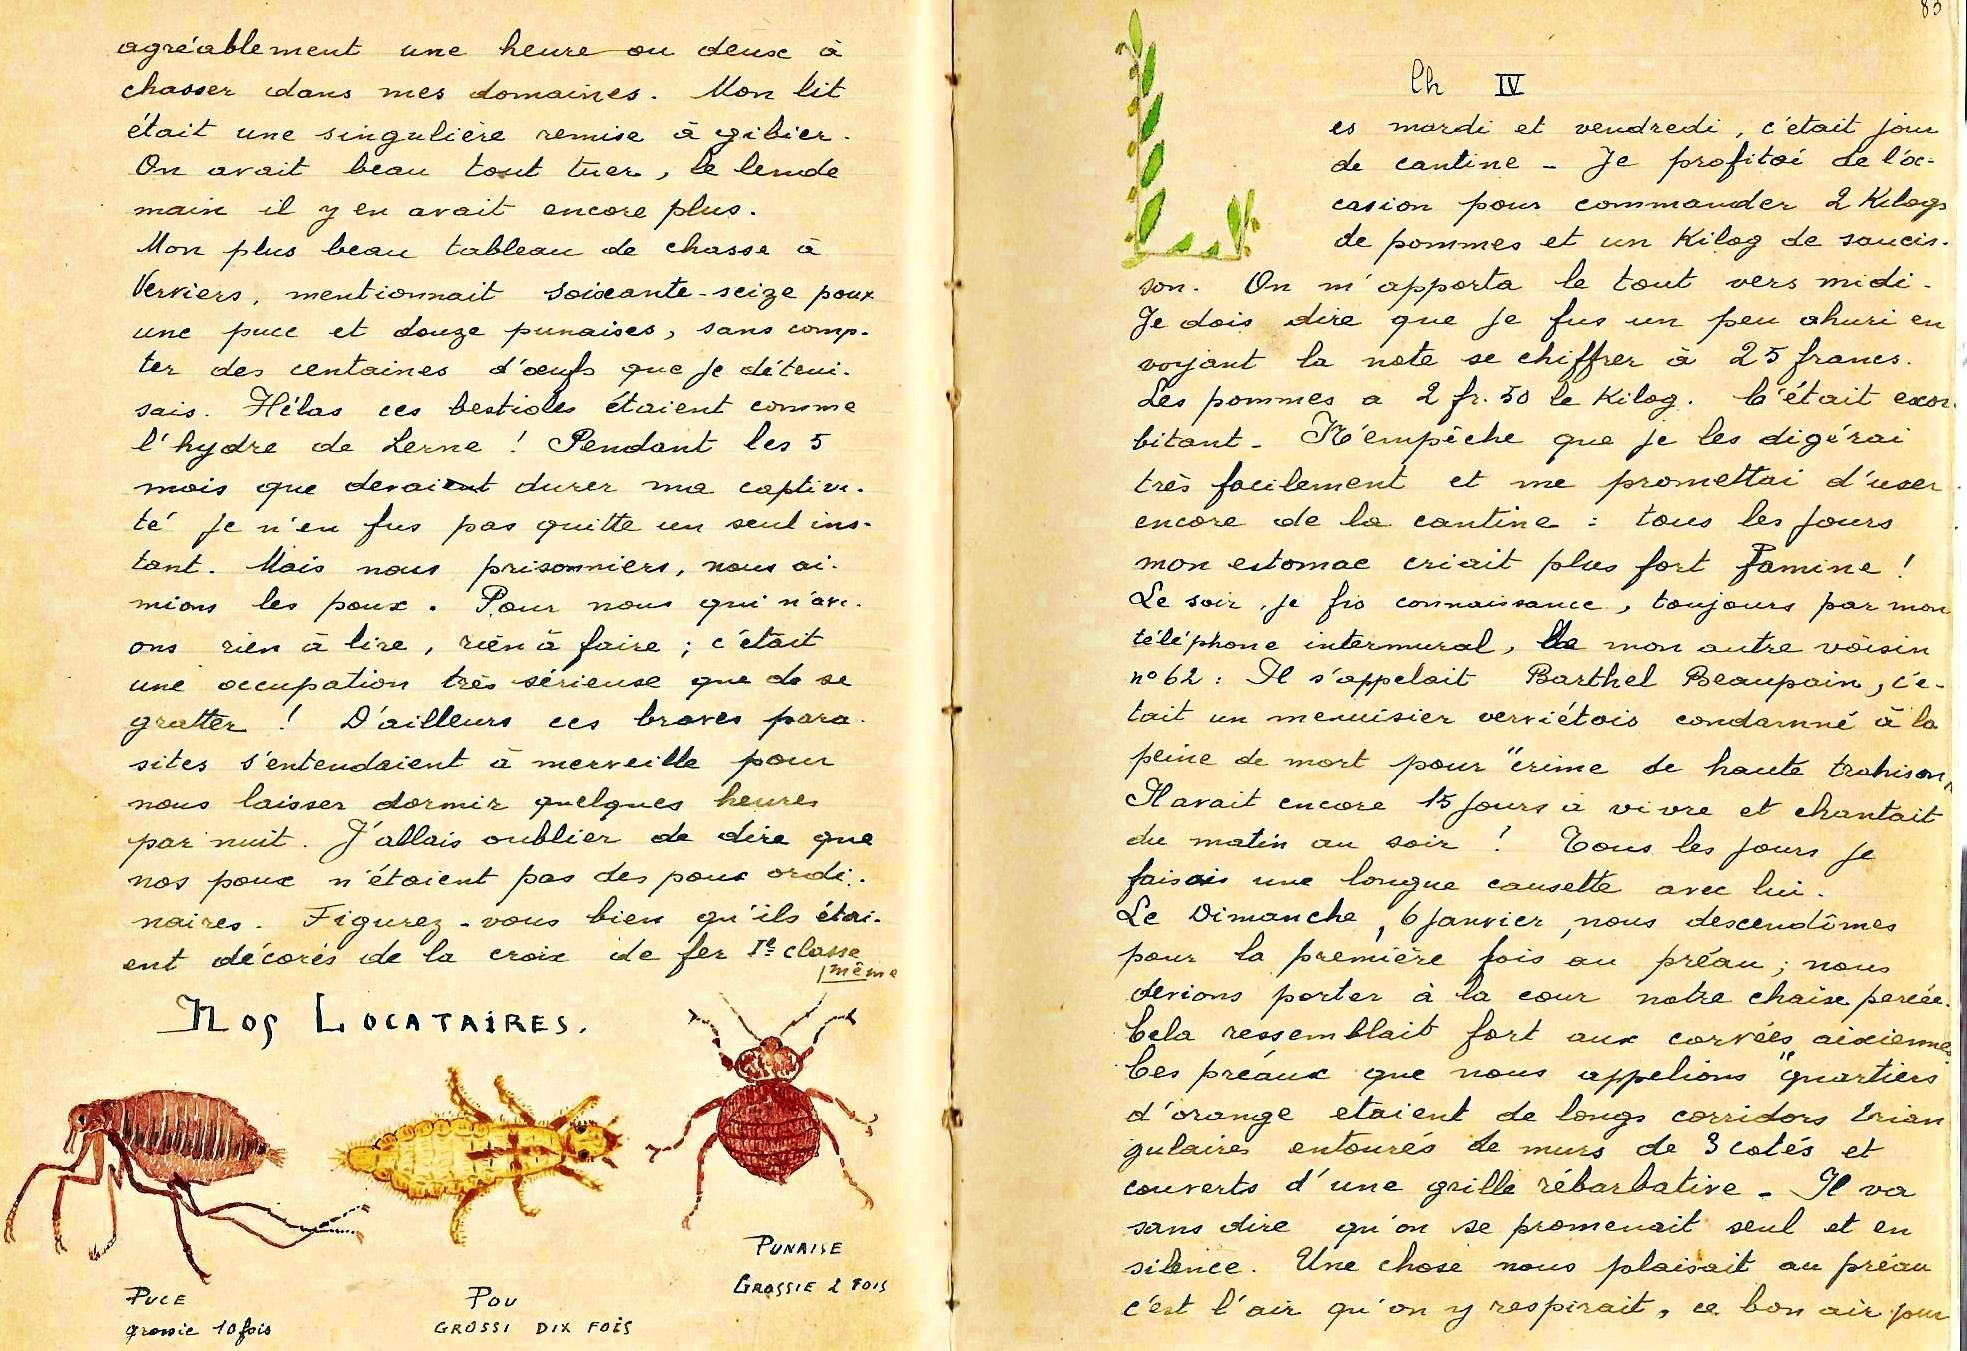 agréablement une heure ou deux à
chasser dans mes domaines. Mon lit
était une singulière remise à gibier.
On avait beau tout tuer, le lende
main il y en avait encore plus.
Mon plus beau tableau de chasse à
Verviers, mentionnait soixante-seize poux
une puce et douze punaises, sans comp-
ter des centaines d'œufs que je détrui-
sais. Hélas ces bestioles étaient comme
l'hydre de Lerne ! Pendant les 5
mois que devaient durer ma captivi-
té je n'en fus pas quitte un seul ins-
tant. Mais nous prisonniers, nous ai-
mions les poux. Pour nous qui n'avi-
ons rien à lire, rien à faire ; c'était
une occupation très sérieuse que de se
gratter ! D'ailleurs ces braves para-
sites s'entendaient à merveille pour
nous laisser dormir quelques heures
par nuit. J'allais oublier de dire que
nos poux n'étaient pas des poux ordi-
naires. Figurez-vous bien qu'ils étai-
ent décorés de la croix de fer Ie classe
même
Nos Locataires.
Puce
grossie 10 fois
Pou
grossi dix fois
Punaise
Grossie 2 fois
83
Ch IV
Les mardi et vendredi, c'était jour
de cantine - Je profitai de l'oc-
casion pour commander 2 Kilogs
de pommes et un Kilog de saucis-
son. On m'apporta le tout vers midi.
Je dois dire que je fus un peu ahuri en
voyant la note se chiffrer à 25 francs.
Les pommes a 2 fr. 50 le Kilog. C'était exor
bitant - N'empêche que je les digérai
très facilement et me promettai d'user
encore de la cantine : tous les jours
mon estomac criait plus fort famine !
Le soir, je fis connaissance, toujours par mon
téléphone intermural, de mon autre voisin
n° 62 : Il s'appelait Barthel Beaupain, c'é-
tait un menuisier verviétois condamné à la
peine de mort pour "crime de haute trahison"
Il avait encore 15 jours à vivre et chantait
du matin au soir ! Tous les jours je
faisais une longue causette avec lui.
Le Dimanche, 6 janvier, nous descendîmes
pour la première fois au préau ; nous
devions porter à la cour notre chaise percée.
Cela ressemblait fort aux corvées aixiennes
Ces préaux que nous appelions "quartiers
d'orange étaient de longs corridors trian
gulaires entourés de murs de 3 cotés et
couverts d'une grille rébarbative - Il va
sans dire qu'on se promenait seul et en
silence. Une chose nous plaisait au préau
c'est l'air qu'on y respirait, ce bon air pur